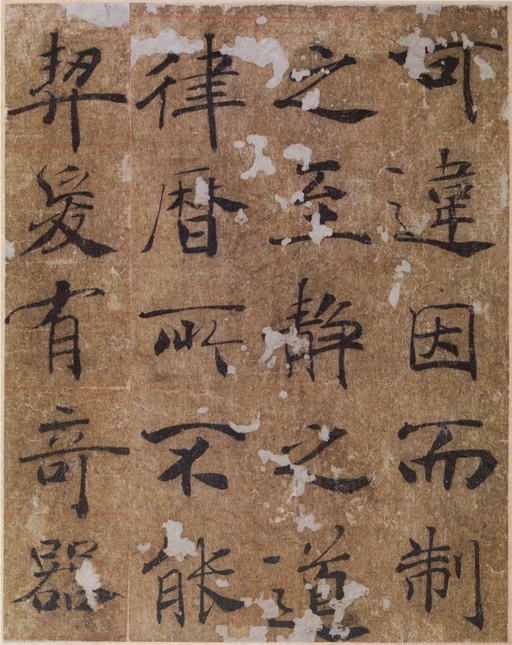 可違因而制
之至静之道
律暦所不能
契爰有奇器